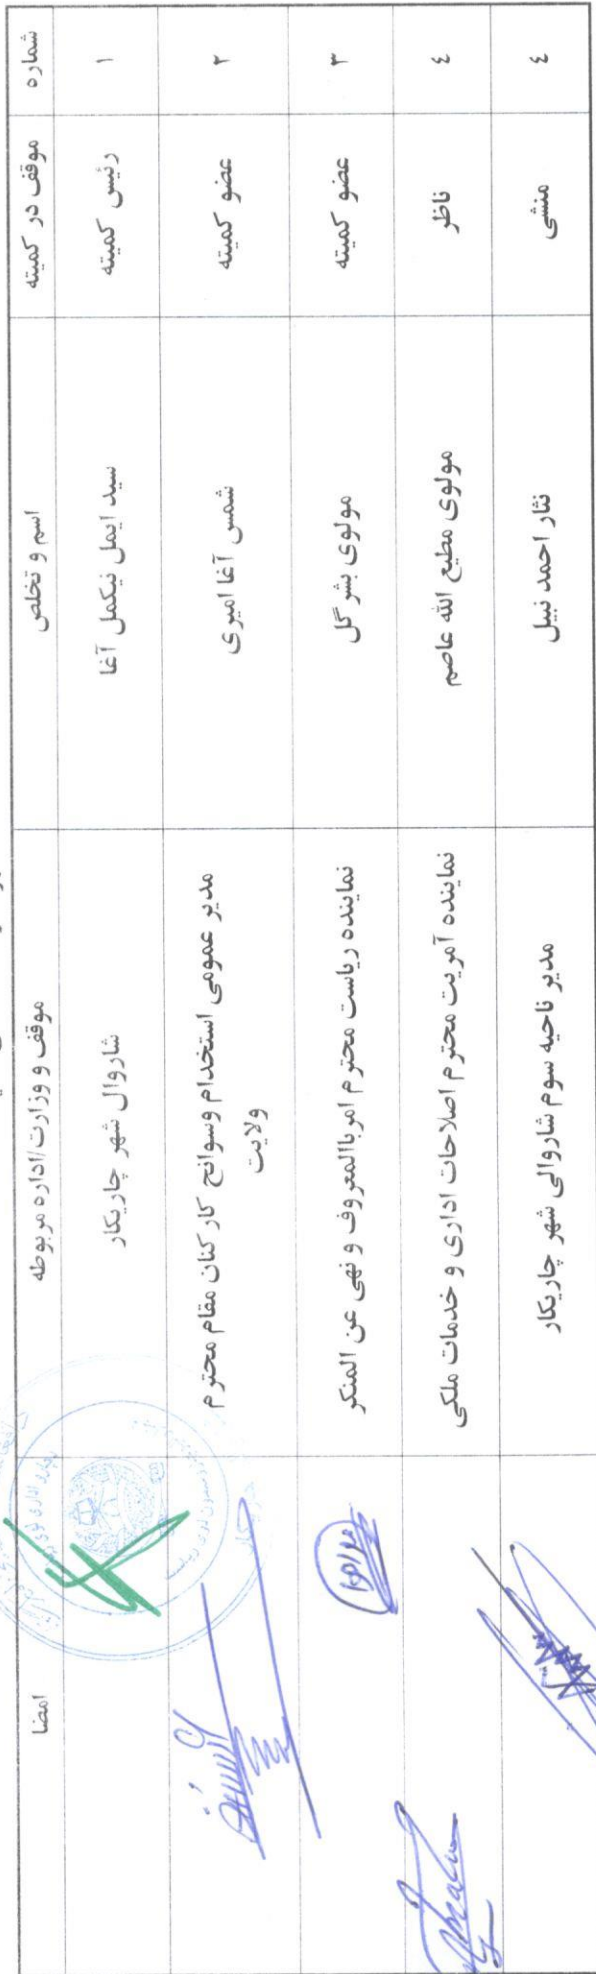 شماره موقف در کمیته اسم و تخلص موقف و وزارت/اداره مربوطه امضا
۱ رئیس کمیته سید ایمل نیکمل آغا شاروال شهر چاریکار
۲ عضو کمیته شمس آغا امیری مدیر عمومی استخدام وسوانح کارکنان مقام محترم
ولایت
۳ عضو کمیته مولوی بشر گل نماینده ریاست محترم امرباالمعروف و نهی عن المنکر
٤ ناظر مولوی مطیع الله عاصم نماینده آمریت محترم اصلاحات اداری و خدمات ملکی
٤ منشی نثار احمد نبیل مدیر ناحیه سوم شاروالی شهر چاریکار